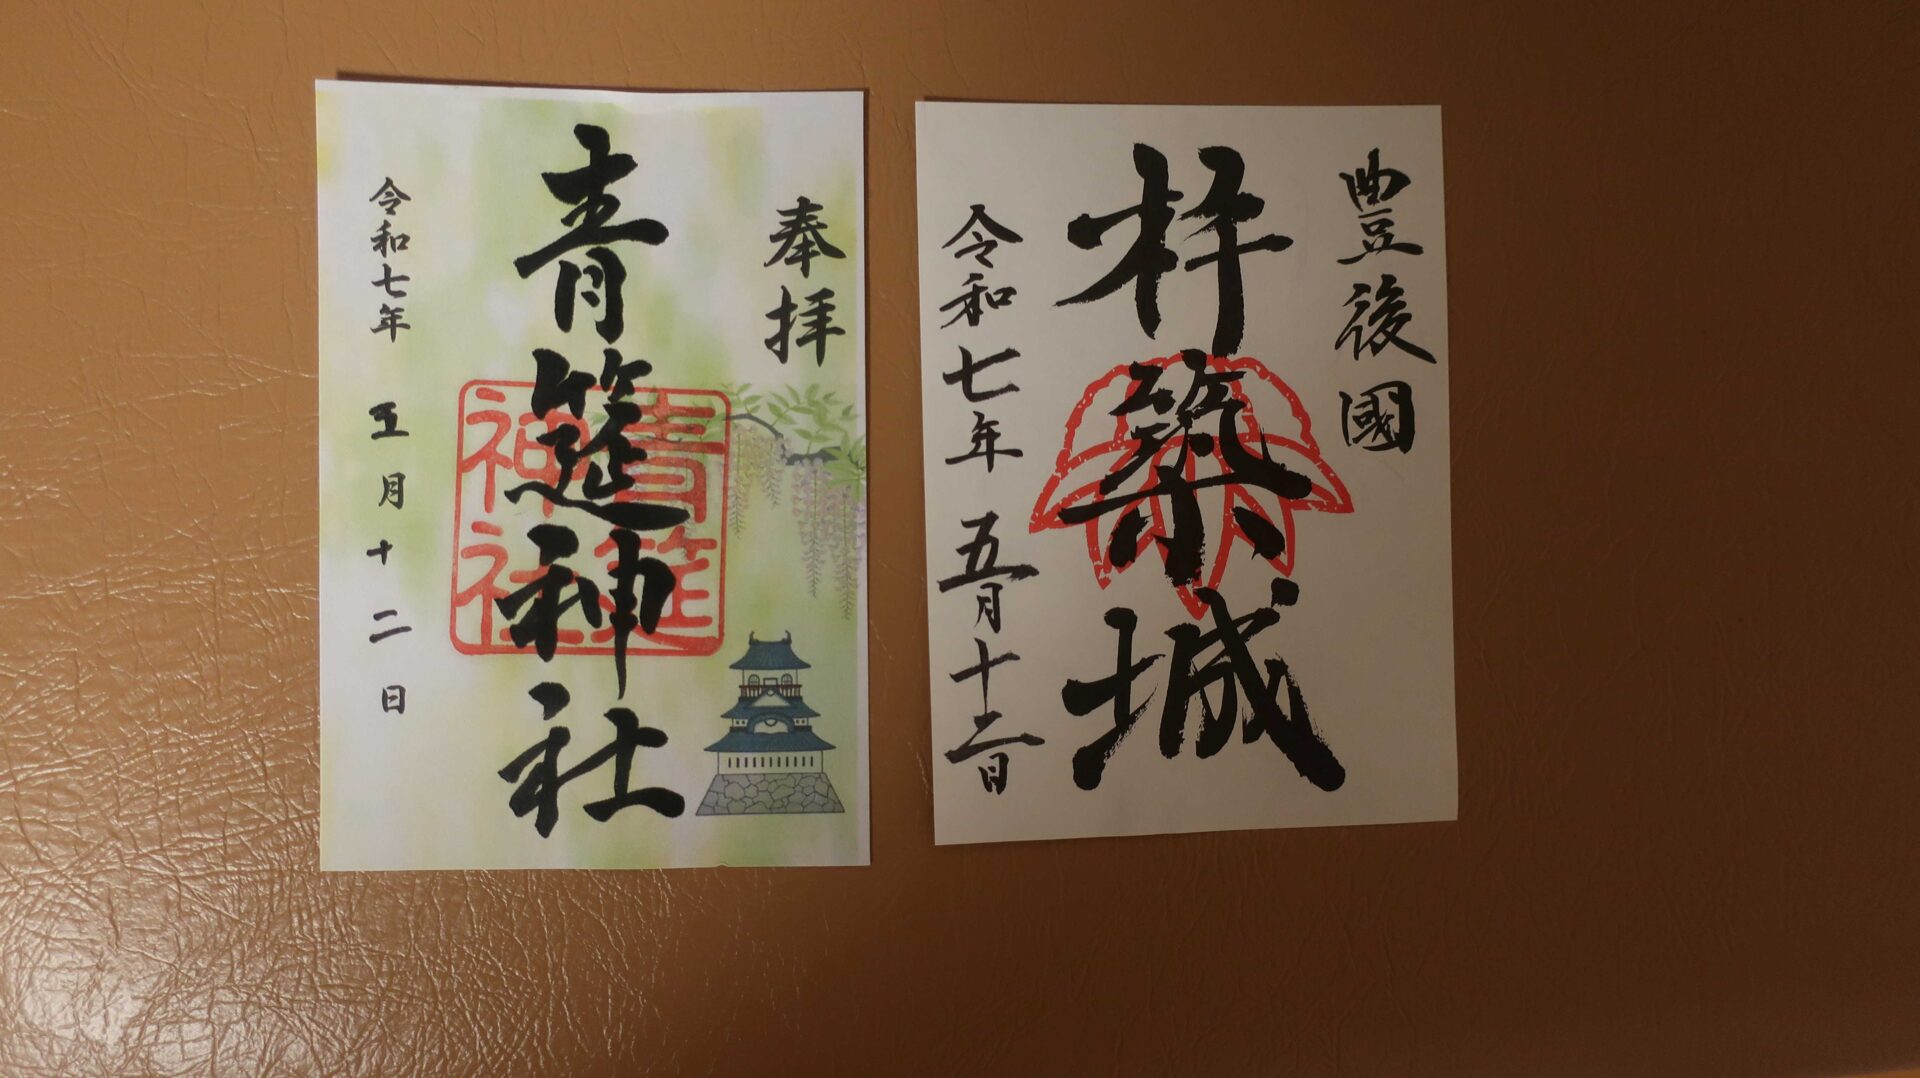 奉拝
青筵神社
青筵
神社
令和七年 五月十二日
豊後國
杵築城
令和七年 五月十二日